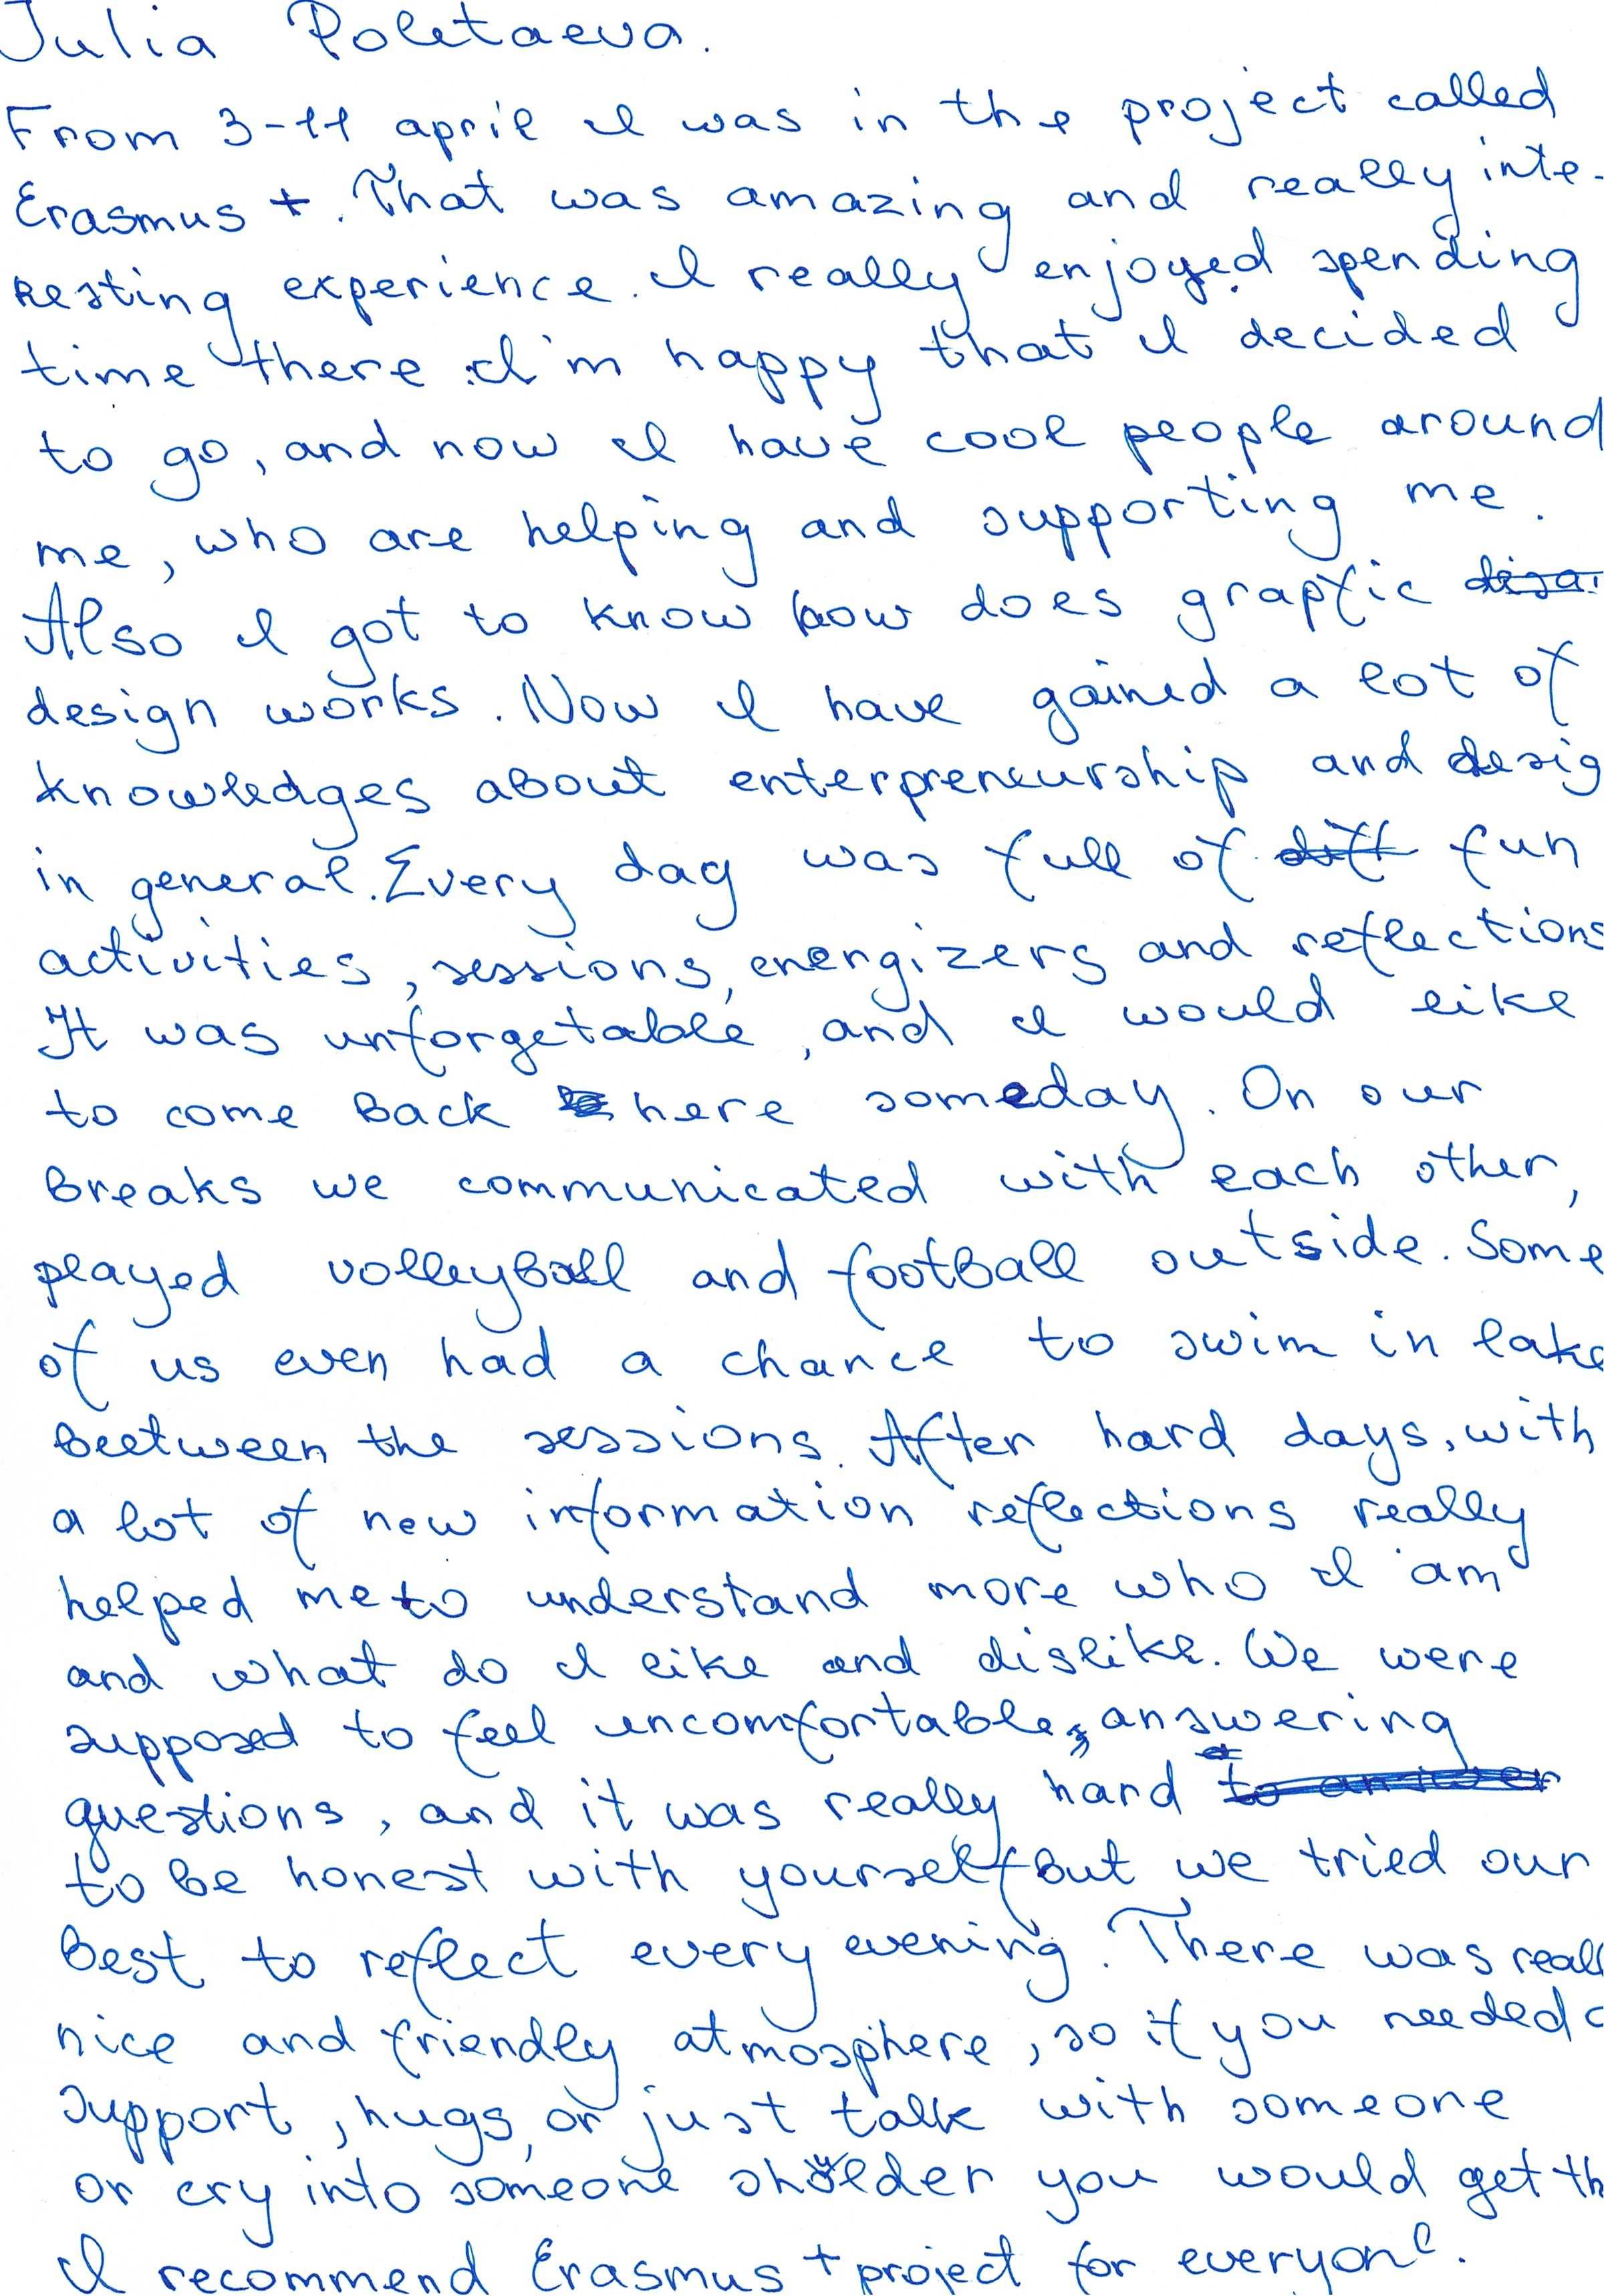 Julia Poletaeva.
From 3-11 april I was in the project called
Erasmus +. That was amazing and really inte-
resting experience. I really enjoyed spending
time there. I'm happy that I decided
to go, and now I have cool people around
me, who are helping and supporting me.
Also I got to know how does grapfic
design works. Now I have gained a lot of
knowledges about enterpreneurship and desig
in general. Every day was full of fun
activities, sessions, energizers and reflections
It was unforgetable, and I would like
to come back here someday. On our
breaks we communicated with each other,
played volleyball and football outside. Some
of us even had a chance to swim in lake
beetween the sessions. After hard days, with
a lot of new information reflections really
helped me to understand more who I am
and what do I like and dislike. We were
supposed to feel uncomfortable, answering
questions, and it was really hard
to be honest with yourself but we tried our
best to reflect every evening. There was reall
nice and friendly atmosphere, so if you needed
support, hugs, or just talk with someone
or cry into someone shoulder you would get th
I recommend Erasmus + project for everyone.